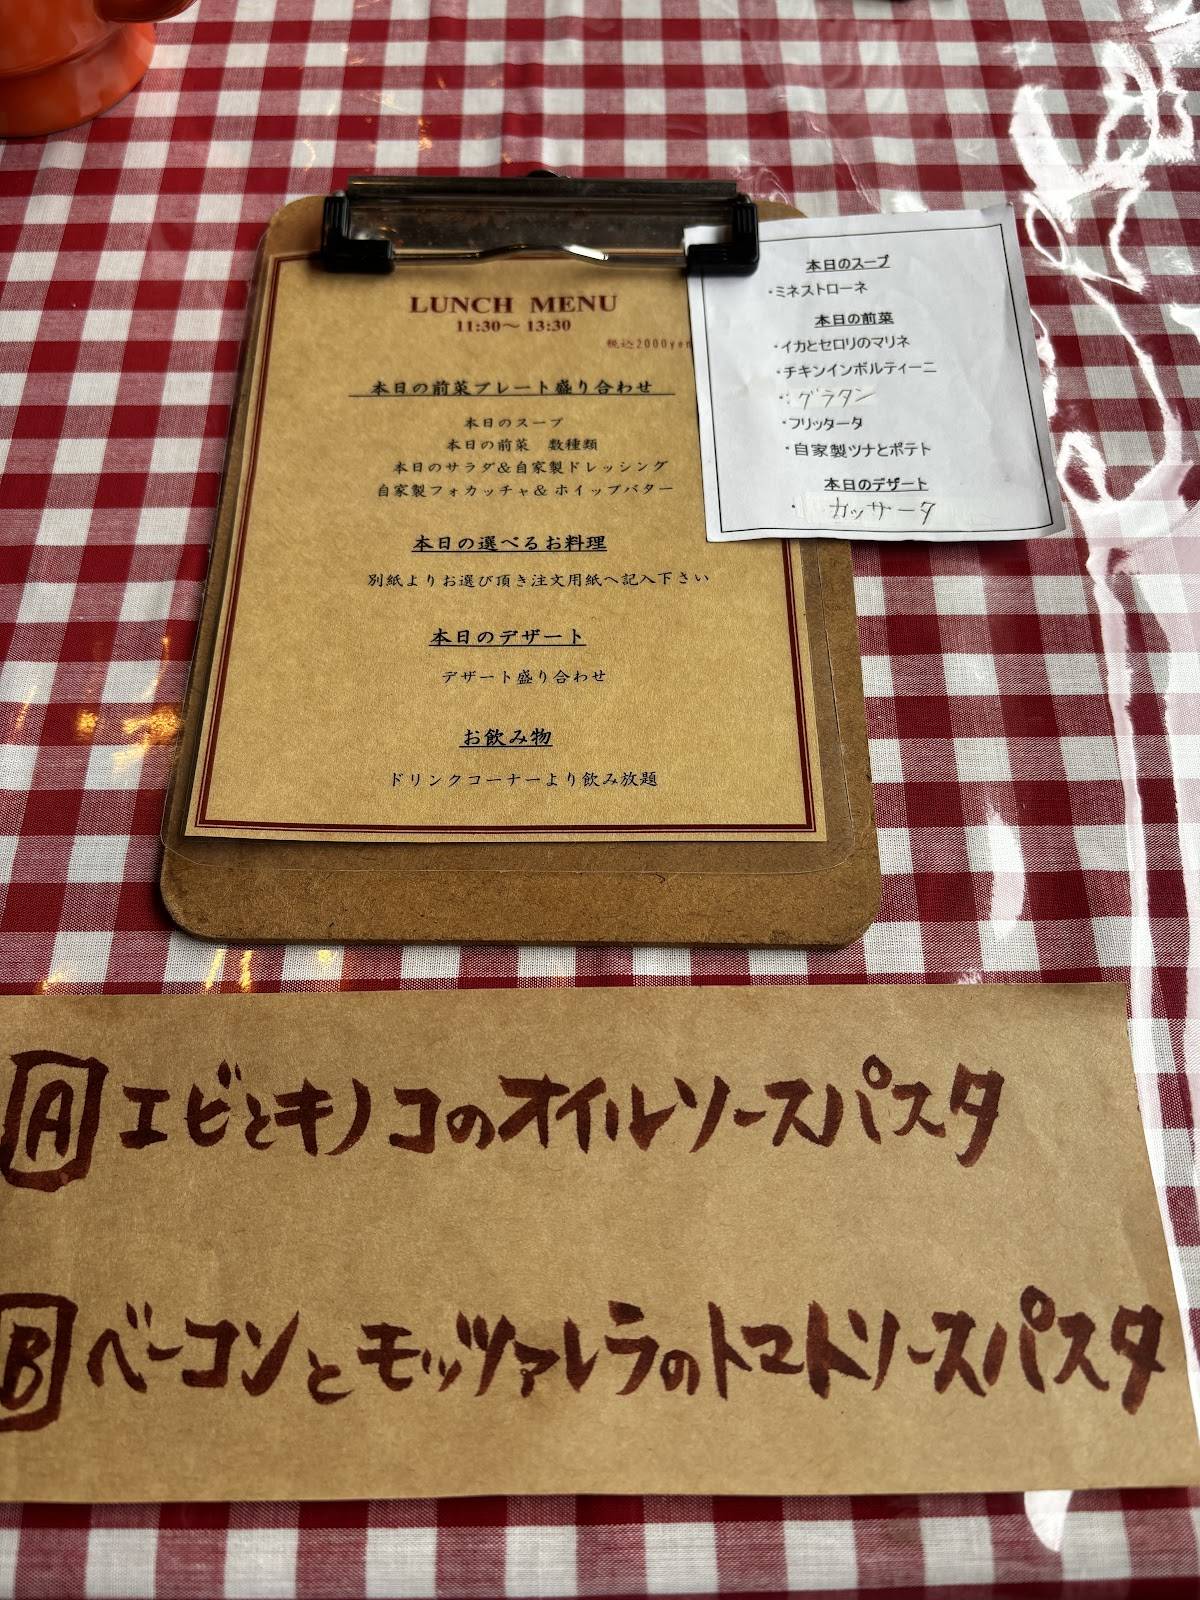 LUNCH MENU
11:30～13:30
税込2000yen
本日の前菜プレート盛り合わせ
本日のスープ
本日の前菜　数種類
本日のサラダ＆自家製ドレッシング
自家製フォカッチャ＆ホイップバター
本日の選べるお料理
別紙よりお選び頂き注文用紙へ記入下さい
本日のデザート
デザート盛り合わせ
お飲み物
ドリンクコーナーより飲み放題
本日のスープ
・ミネストローネ
本日の前菜
・イカとセロリのマリネ
・チキンインボルティーニ
・グラタン
・フリッタータ
・自家製ツナとポテト
本日のデザート
・カッサータ
A エビとキノコのオイルソースパスタ
B ベーコンとモッツァレラのトマトソースパスタ